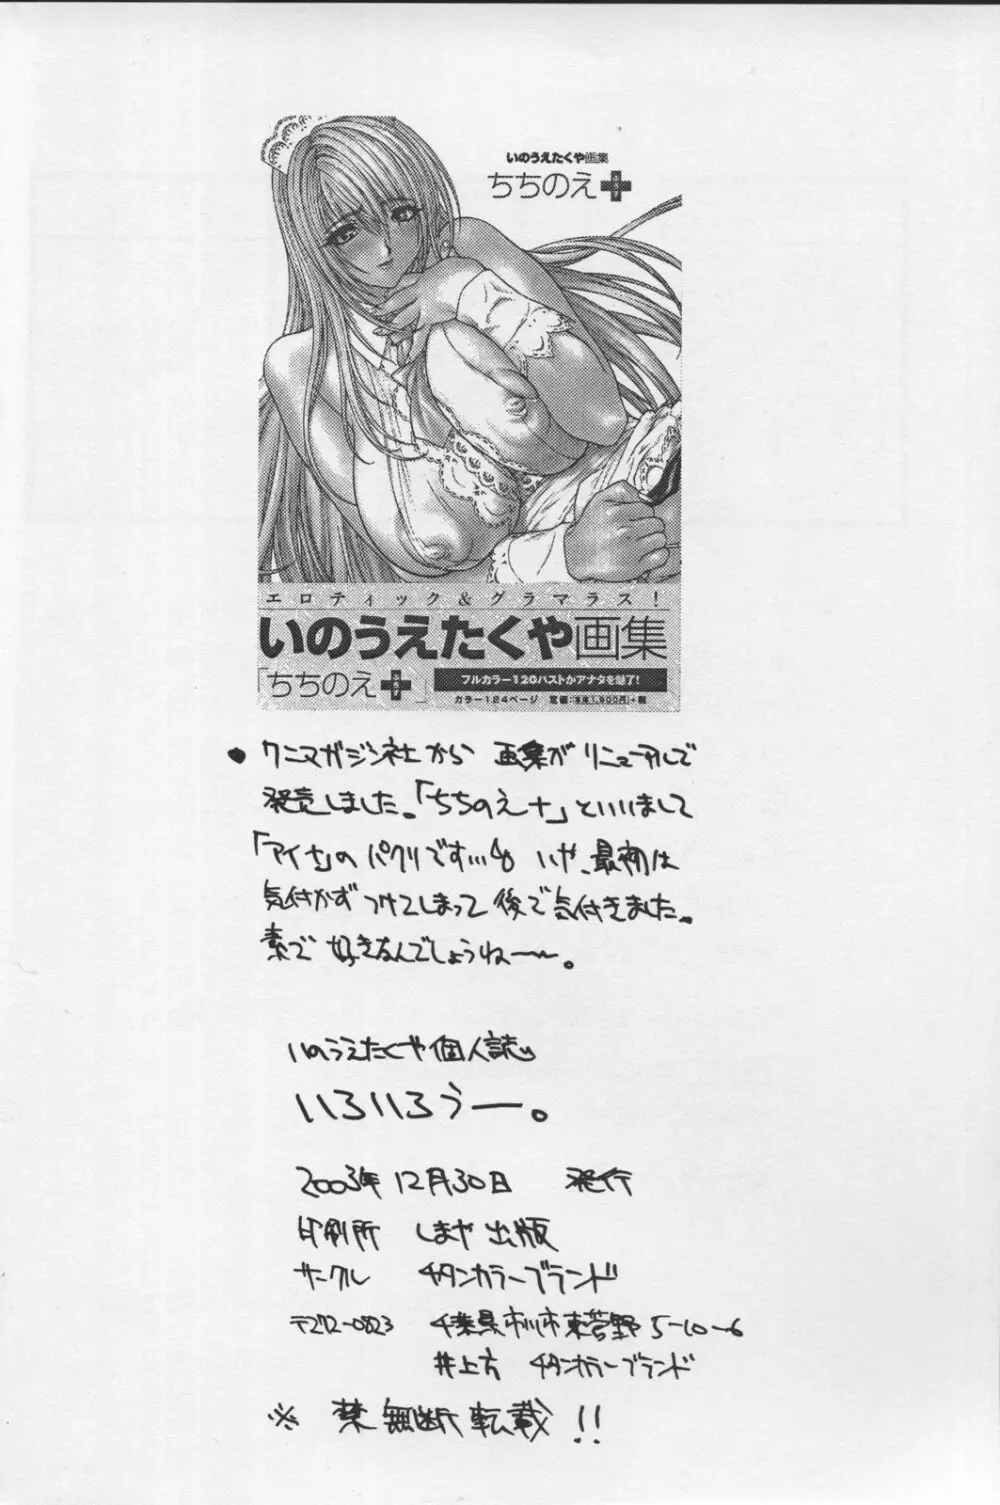 いのうえたくや画集
ちちのえ+
エロティック&グラマラス!
いのうえたくや画集
「ちちのえ+」
フルカラー120ハストがアナタを魅了!
カラー124ページ 定価:本体1,900円+税
● ワニマガジン社から 画集がリニューアルして
発売しました。「ちちのえ+」といいまして
「アイナ」のパクリです… いや、最初は
気付かずつけてしまって後で気付きました。
素で好きなんでしょうねー〜。
いのうえたくや個人誌
いろいろうー。
2003年12月30日 発行
印刷所 しまや出版
サークル チタンカラーブランド
〒272-0823 千葉県市川市東菅野5-10-6
井上方 チタンカラーブランド
※ 禁無断転載!!